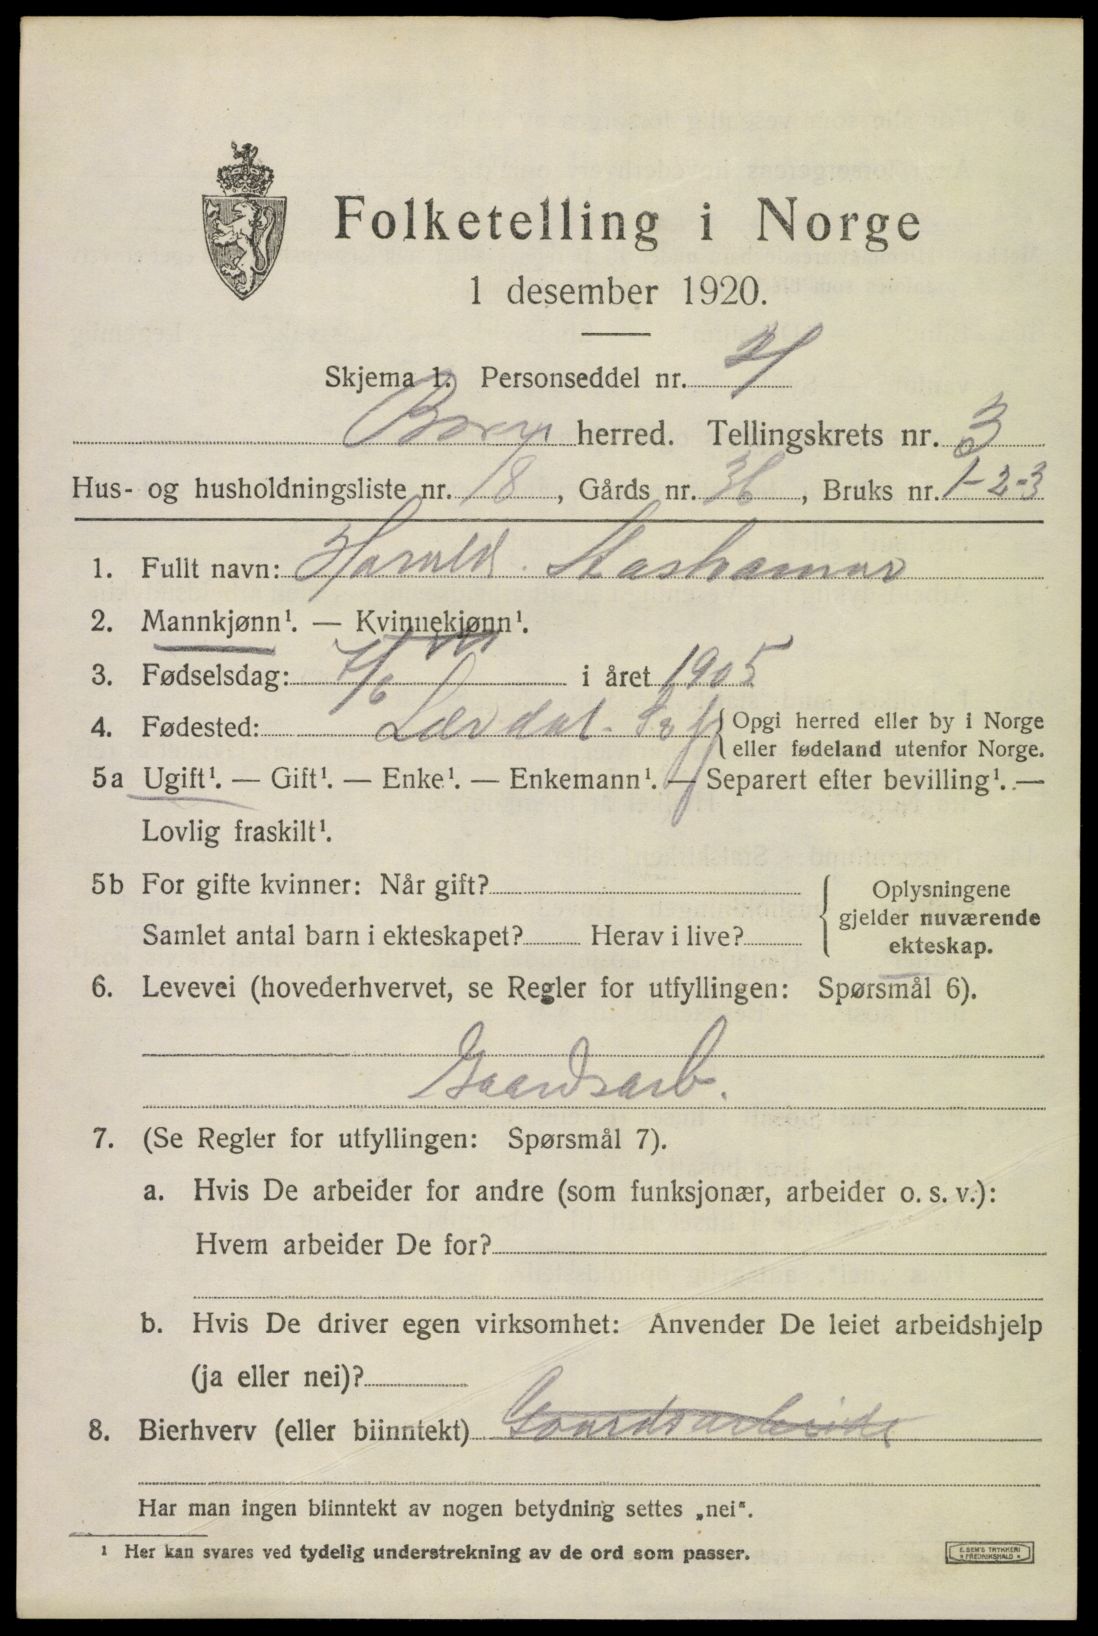 Folketelling i Norge
1 desember 1920.
Skjema 1. Personseddel nr. 21
herred. Tellingskrets nr. 3
Hus- og husholdningsliste nr. 18, Gårds nr. 36, Bruks nr. 1-2-3
1. Fullt navn: Harald
2. Mannkjønn¹. — Kvinnekjønn¹.
3. Fødselsdag: 7/6 i året 1905
4. Fødested: Lærdal. {Opgi herred eller by i Norge
eller fødeland utenfor Norge.
5a Ugift¹. — Gift¹. — Enke¹. — Enkemann¹. — Separert efter bevilling¹. —
Lovlig fraskilt¹.
5b For gifte kvinner: Når gift?
Samlet antal barn i ekteskapet? Herav i live?
{Oplysningene
gjelder nuværende
ekteskap.
6. Levevei (hovederhvervet, se Regler for utfyllingen: Spørsmål 6).
Gaardsarb.
7. (Se Regler for utfyllingen: Spørsmål 7).
a. Hvis De arbeider for andre (som funksjonær, arbeider o. s. v.):
Hvem arbeider De for?
b. Hvis De driver egen virksomhet: Anvender De leiet arbeidshjelp
(ja eller nei)?
8. Bierhverv (eller biinntekt) Gaardsarbeide
Har man ingen biinntekt av nogen betydning settes „nei".
¹ Her kan svares ved tydelig understrekning av de ord som passer.
E. SEM'S TRYKKERI
FREDRIKSHALD